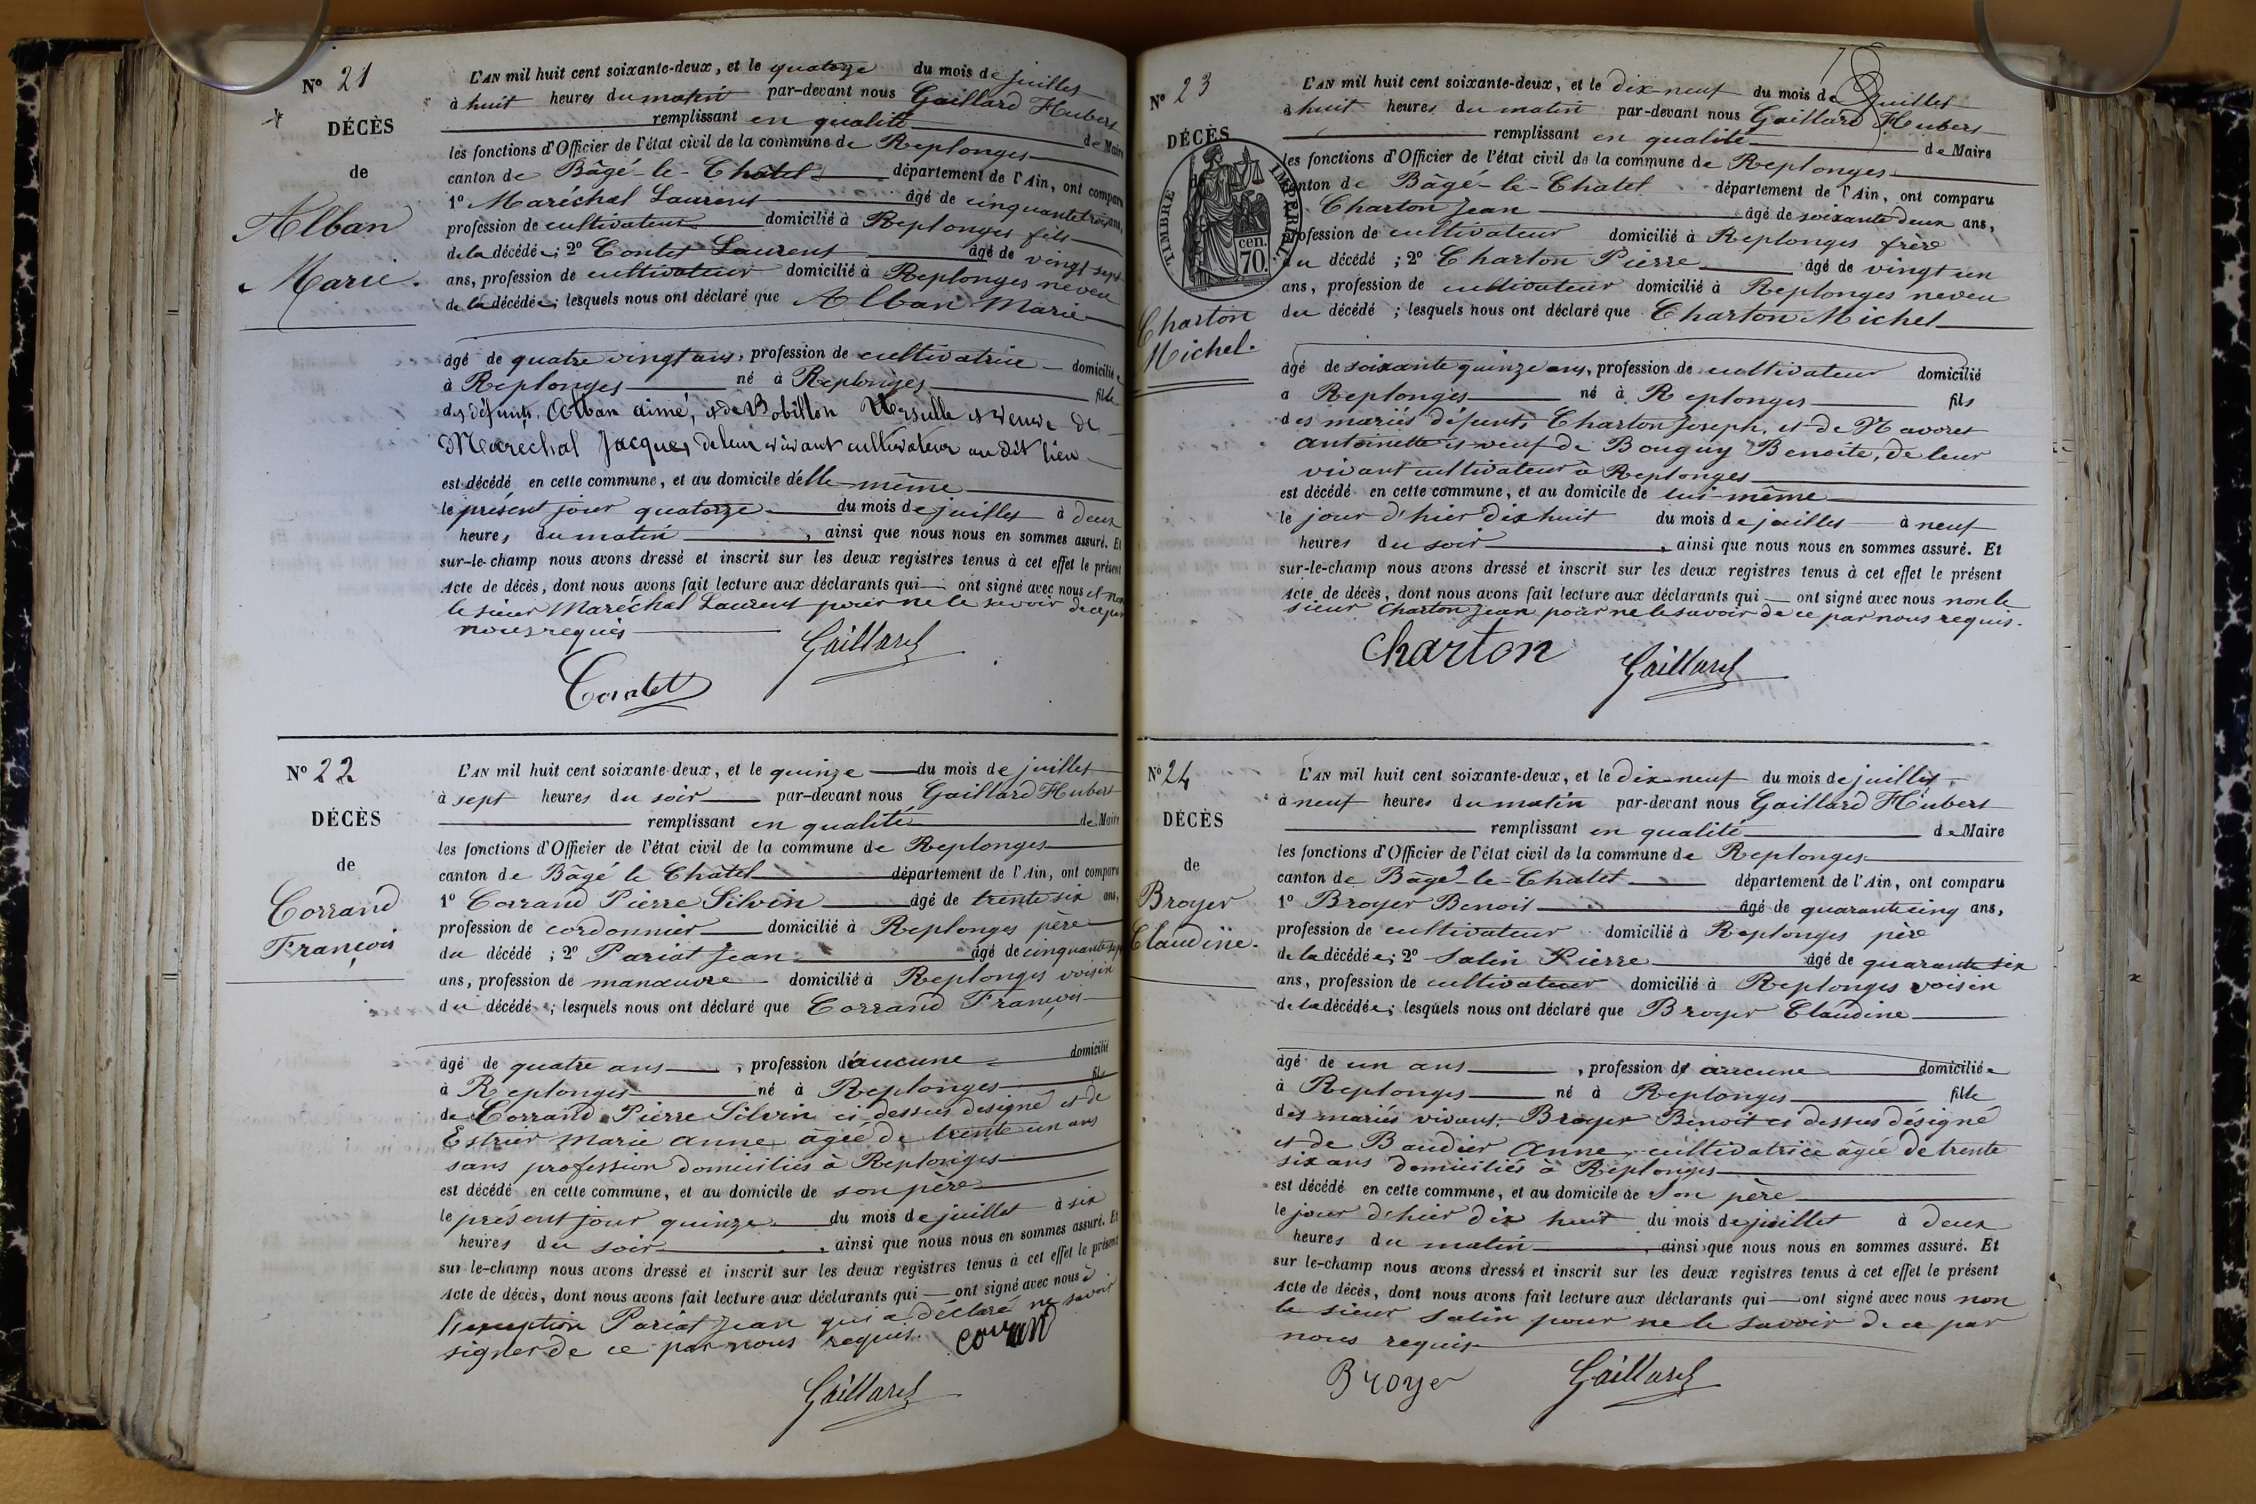 Nº 21
DÉCÈS
de
Alban
Marie.
L'AN mil huit cent soixante-deux, et le quatorze du mois de juillet
à huit heures du matin par-devant nous Gaillard Hubert
remplissant en qualité de Maire
les fonctions d'Officier de l'état civil de la commune de Replonges
canton de Bâgé-le-Châtel département de l'Ain, ont comparu
1º Maréchal Laurent âgé de cinquante trois ans,
profession de cultivateur domicilié à Replonges fils
de la décédée; 2º Contet Laurent âgé de vingt sept
ans, profession de cultivateur domicilié à Replonges neveu
de la décédée; lesquels nous ont déclaré que Alban Marie
âgé de quatre vingt ans, profession de cultivatrice domiciliée
à Replonges né à Replonges fille
des défunts Alban aimé, et de Bobillon Urssulle et veuve de
Maréchal Jacques de leur vivant cultivateur au dit lieu
est décédé en cette commune, et au domicile d'elle même
le présent jour quatorze du mois de juillet à deux
heures du matin, ainsi que nous nous en sommes assuré. Et
sur-le-champ nous avons dressé et inscrit sur les deux registres tenus à cet effet le présent
Acte de décès, dont nous avons fait lecture aux déclarants qui ont signé avec nous et non
le sieur Maréchal Laurent pour ne le savoir de ce par
nous requis
Gaillard
Contet
Nº 22
DÉCÈS
de
Corrand
François
L'AN mil huit cent soixante-deux, et le quinze du mois de juillet
à sept heures du soir par-devant nous Gaillard Hubert
remplissant en qualité de Maire
les fonctions d'Officier de l'état civil de la commune de Replonges
canton de Bâgé le Châtel département de l'Ain, ont comparu
1º Corrand Pierre Silvin âgé de trente six ans,
profession de cordonnier domicilié à Replonges père
du décédé ; 2º Pariat Jean âgé de cinquante sept
ans, profession de manœuvre domicilié à Replonges voisin
du décédé ; lesquels nous ont déclaré que Corrand François
âgé de quatre ans, profession d'aucune domicilié
à Replonges né à Replonges fils
de Corrand Pierre Silvin ci dessus designé et de
Estrier Marie anne âgée de trente un ans
sans profession domiciliés à Replonges
est décédé en cette commune, et au domicile de son père
le présent jour quinze du mois de juillet à six
heures du soir, ainsi que nous nous en sommes assuré. Et
sur-le-champ nous avons dressé et inscrit sur les deux registres tenus à cet effet le présent
Acte de décès, dont nous avons fait lecture aux déclarants qui ont signé avec nous à
l'exception Pariat Jean qui a déclaré ne savoir
signer de ce par nous requis. corran
Gaillard
78
Nº 23
DÉCÈS
TIMBRE IMPÉRIAL
cen. 70.
Charton
Michel.
L'AN mil huit cent soixante-deux, et le Dix neuf du mois de Juillet
à huit heures du matin par-devant nous Gaillard Hubert
remplissant en qualité de Maire
les fonctions d'Officier de l'état civil de la commune de Replonges
canton de Bâgé-le-Chatel département de l'Ain, ont comparu
Charton Jean âgé de soixante deux ans,
profession de cultivateur domicilié à Replonges frère
du décédé ; 2º Charton Pierre âgé de vingt un
ans, profession de cultivateur domicilié à Replonges neveu
du décédé ; lesquels nous ont déclaré que Charton Michel
âgé de soixante quinze ans, profession de cultivateur domicilié
a Replonges né à Replonges fils
des mariés défunts Charton Joseph, et de Navoret
Antoinette et veuf de Bouguy Benoite, de leur
vivant cultivateur à Replonges
est décédé en cette commune, et au domicile de lui même
le jour d'hier dix huit du mois de juillet à neuf
heures du soir, ainsi que nous nous en sommes assuré. Et
sur-le-champ nous avons dressé et inscrit sur les deux registres tenus à cet effet le présent
Acte de décès, dont nous avons fait lecture aux déclarants qui ont signé avec nous non le
sieur Charton Jean pour ne le savoir de ce par nous requis.
Charton
Gaillard
Nº 24
DÉCÈS
de
Broyer
Claudine.
L'AN mil huit cent soixante-deux, et le Dix neuf du mois de juillet,
à neuf heures du matin par-devant nous Gaillard Hubert
remplissant en qualité de Maire
les fonctions d'Officier de l'état civil de la commune de Replonges
canton de Bâgé-le-Chatel département de l'Ain, ont comparu
1º Broyer Benoit âgé de quarante cinq ans,
profession de cultivateur domicilié à Replonges père
de la décédée; 2º Salin Pierre âgé de quarante six
ans, profession de cultivateur domicilié à Replonges voisin
de la décédée; lesquels nous ont déclaré que Broyer Claudine
âgé de un ans, profession de aucune domiciliée
à Replonges né à Replonges fille
des mariés vivant Broyer Benoit ci dessus désigné
et de Baudier Anne, cultivatrice âgée de trente
six ans domiciliés à Replonges
est décédé en cette commune, et au domicile de son père
le jour d'hier dix huit du mois de juillet à deux
heures du matin, ainsi que nous nous en sommes assuré. Et
sur le-champ nous avons dressé et inscrit sur les deux registres tenus à cet effet le présent
Acte de décès, dont nous avons fait lecture aux déclarants qui ont signé avec nous non
le sieur Salin pour ne le savoir de ce par
nous requis
Broyer
Gaillard